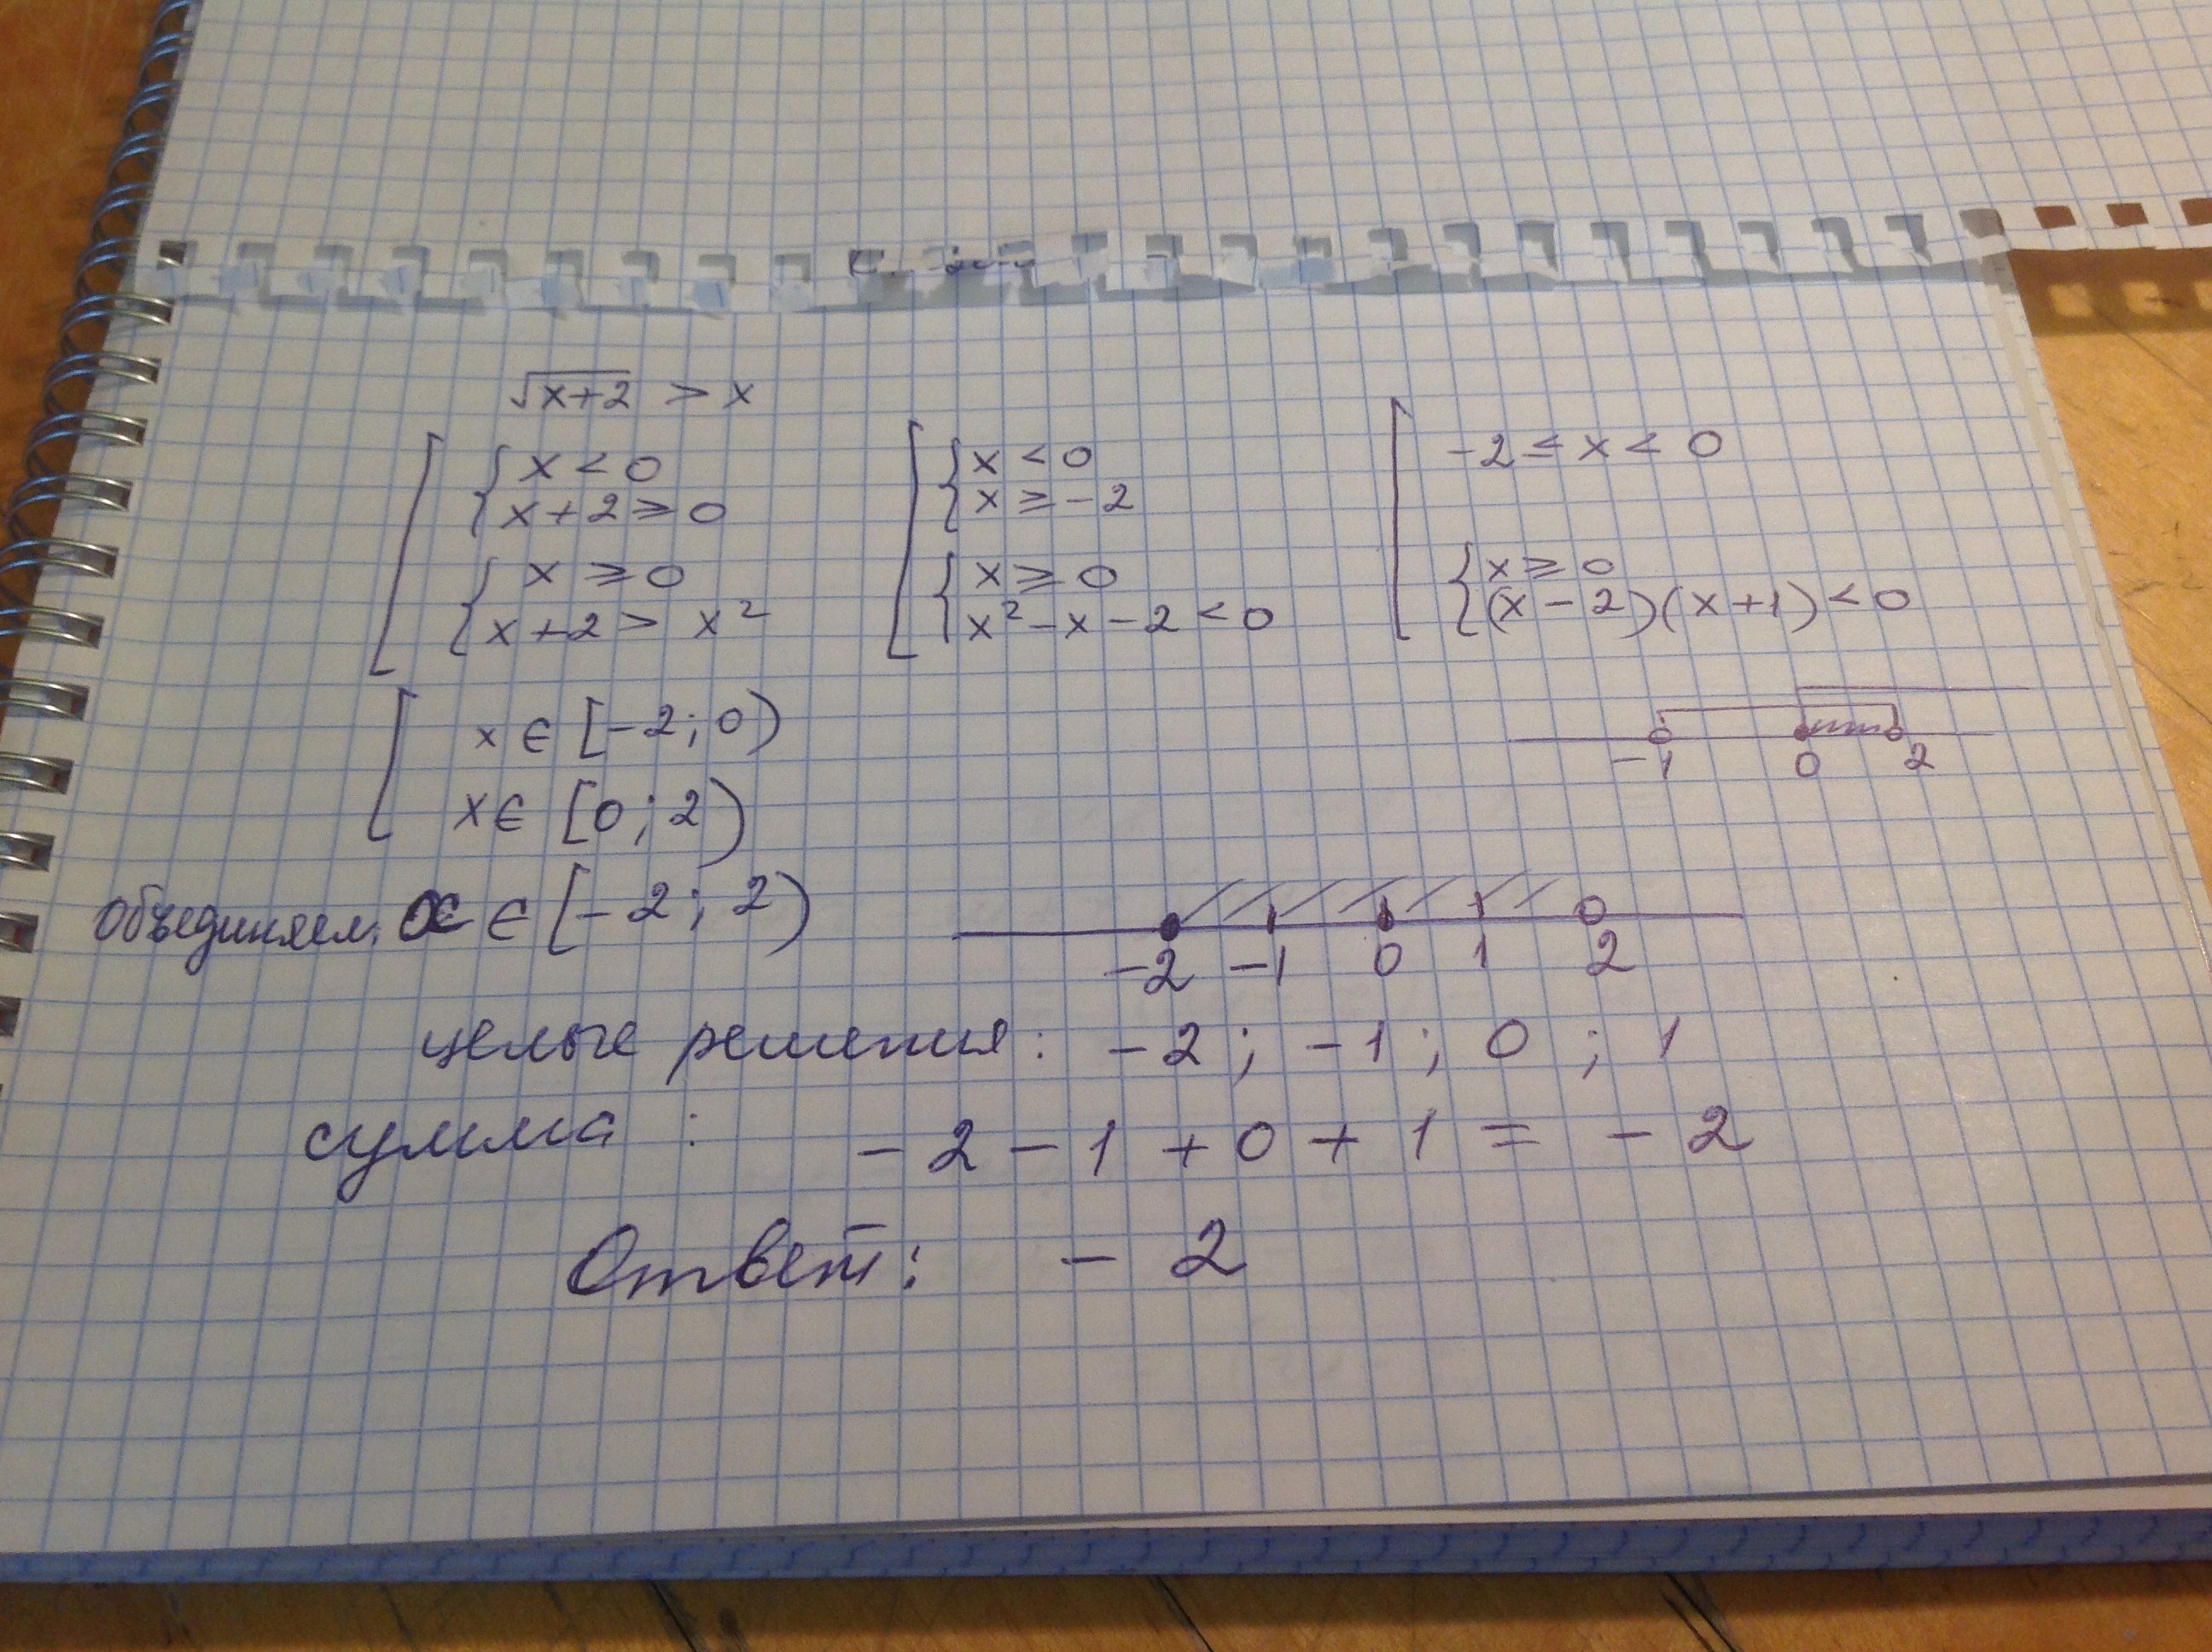 √x+2 > x
[ { x < 0 [ { x < 0 [ -2 ≤ x < 0
x + 2 ≥ 0 x ≥ -2
{ x ≥ 0 { x ≥ 0 { x ≥ 0
x + 2 > x² x² - x - 2 < 0 (x - 2)(x + 1) < 0
[ x ∈ [-2; 0)
-1 0 2
x ∈ [0; 2)
Объединяем: x ∈ [-2; 2)
-2 -1 0 1 2
целые решения: -2; -1; 0; 1
сумма: -2 - 1 + 0 + 1 = -2
Ответ: -2